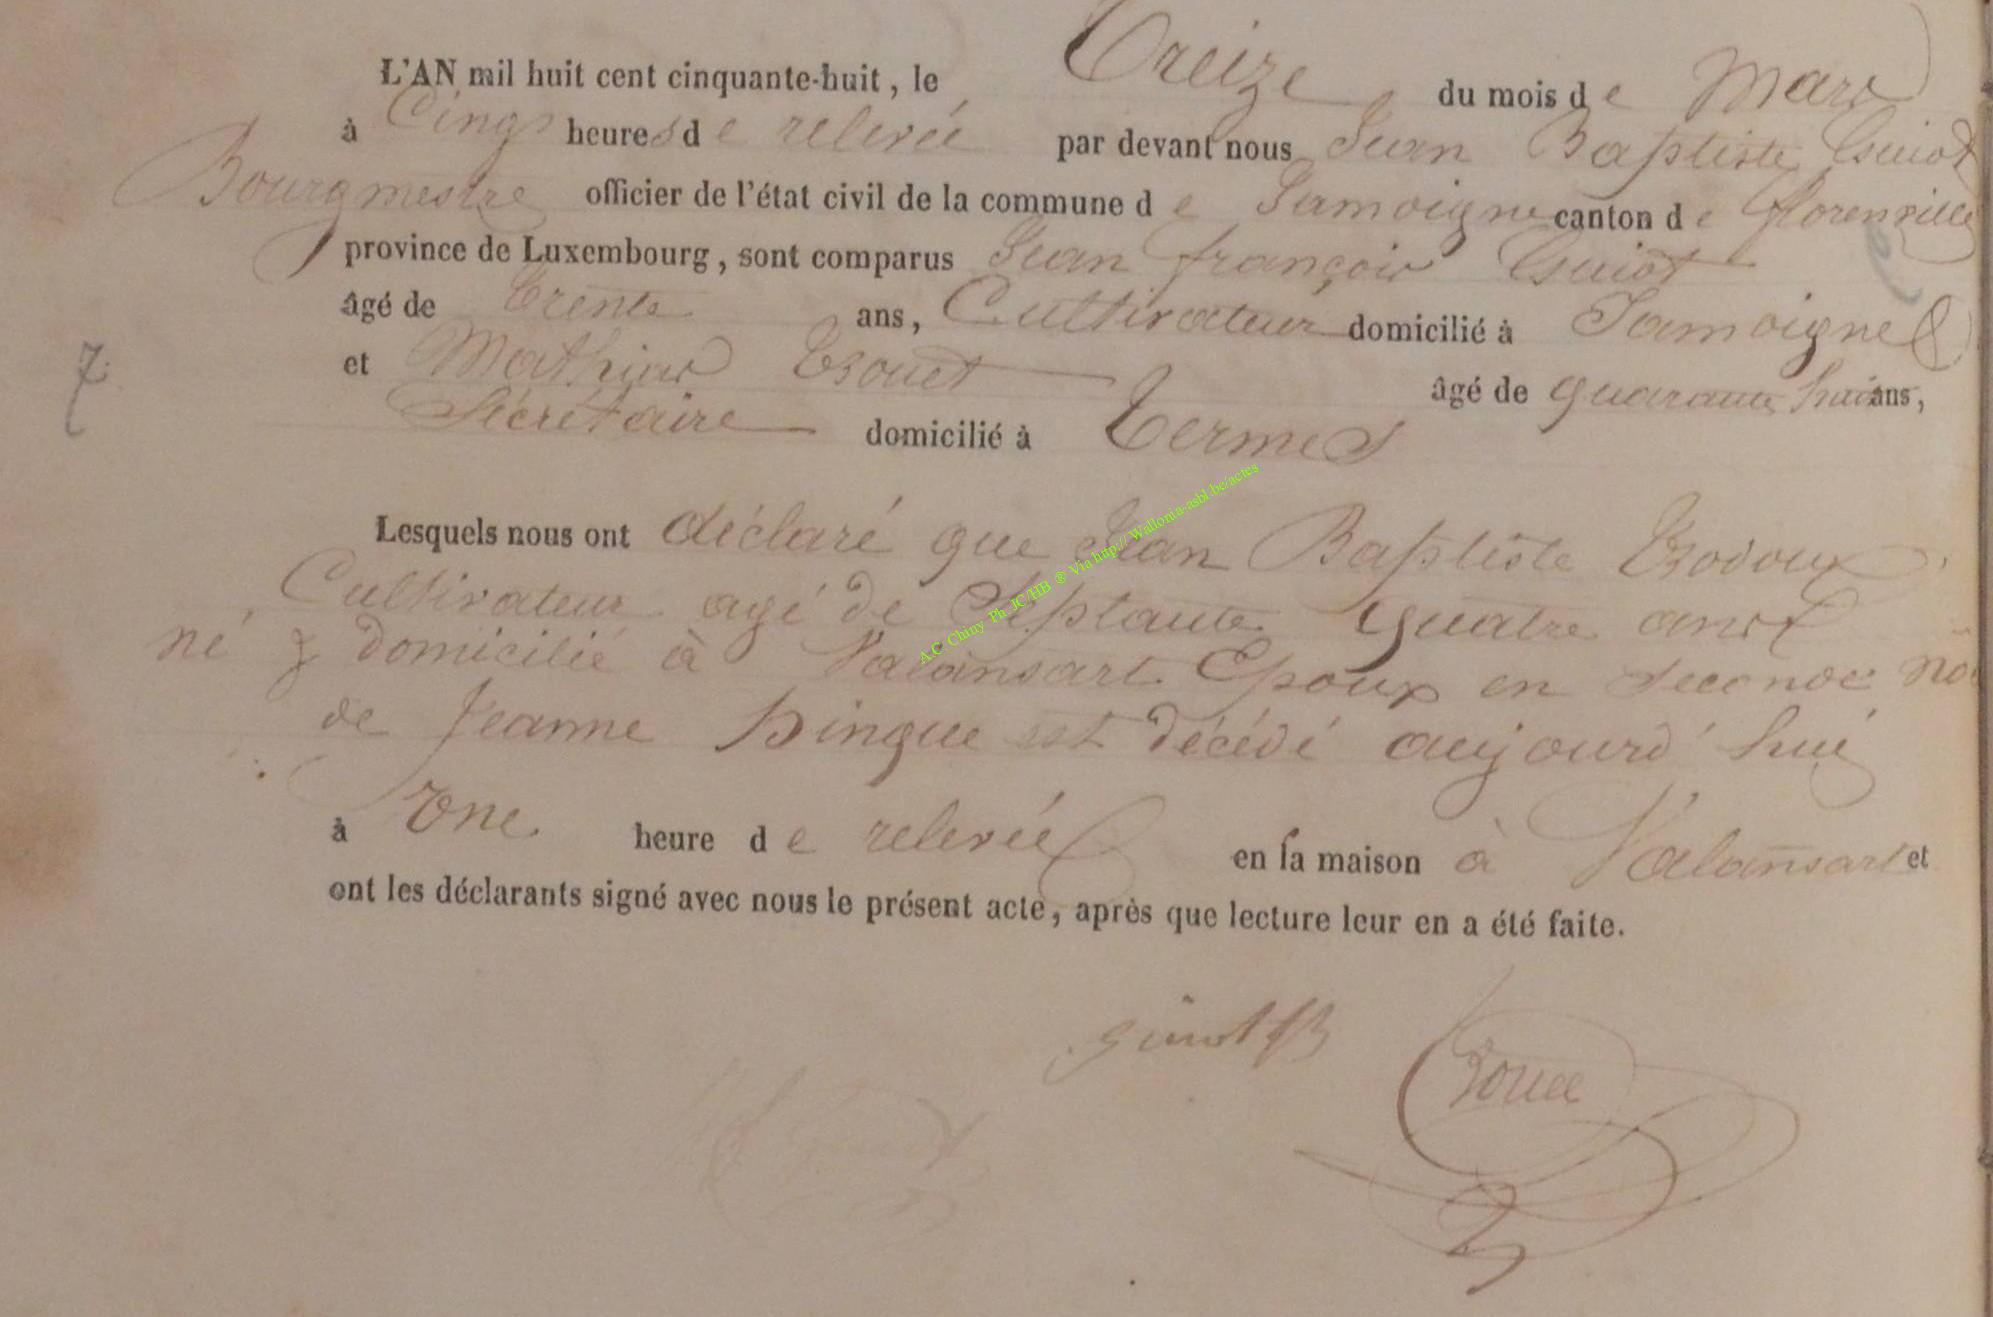 L'AN mil huit cent cinquante-huit, le Treize du mois de Mars
à Cinq heures de relevée par devant nous Jean Baptiste Guiot
Bourgmestre officier de l'état civil de la commune de Jamoigne canton de florenville
province de Luxembourg, sont comparus Jean françois Guiot
âgé de trente ans, Cultivateur domicilié à Jamoigne
et Mathias age de quarante huit ans,
7
Sécrétaire domicilié à Termes
Lesquels nous ont déclaré que Jean Baptiste
Cultivateur agé de Septante Quatre ans
né & domicilié à Valansart Epoux en seconde
de Jeanne est décédé aujourd'hui
à Une heure de relevée en sa maison à Valansart et
ont les déclarants signé avec nous le présent acte, après que lecture leur en a été faite.
A.C Chiny Ph JC/HB ® Via http://Wallonia-asbl.be/actes